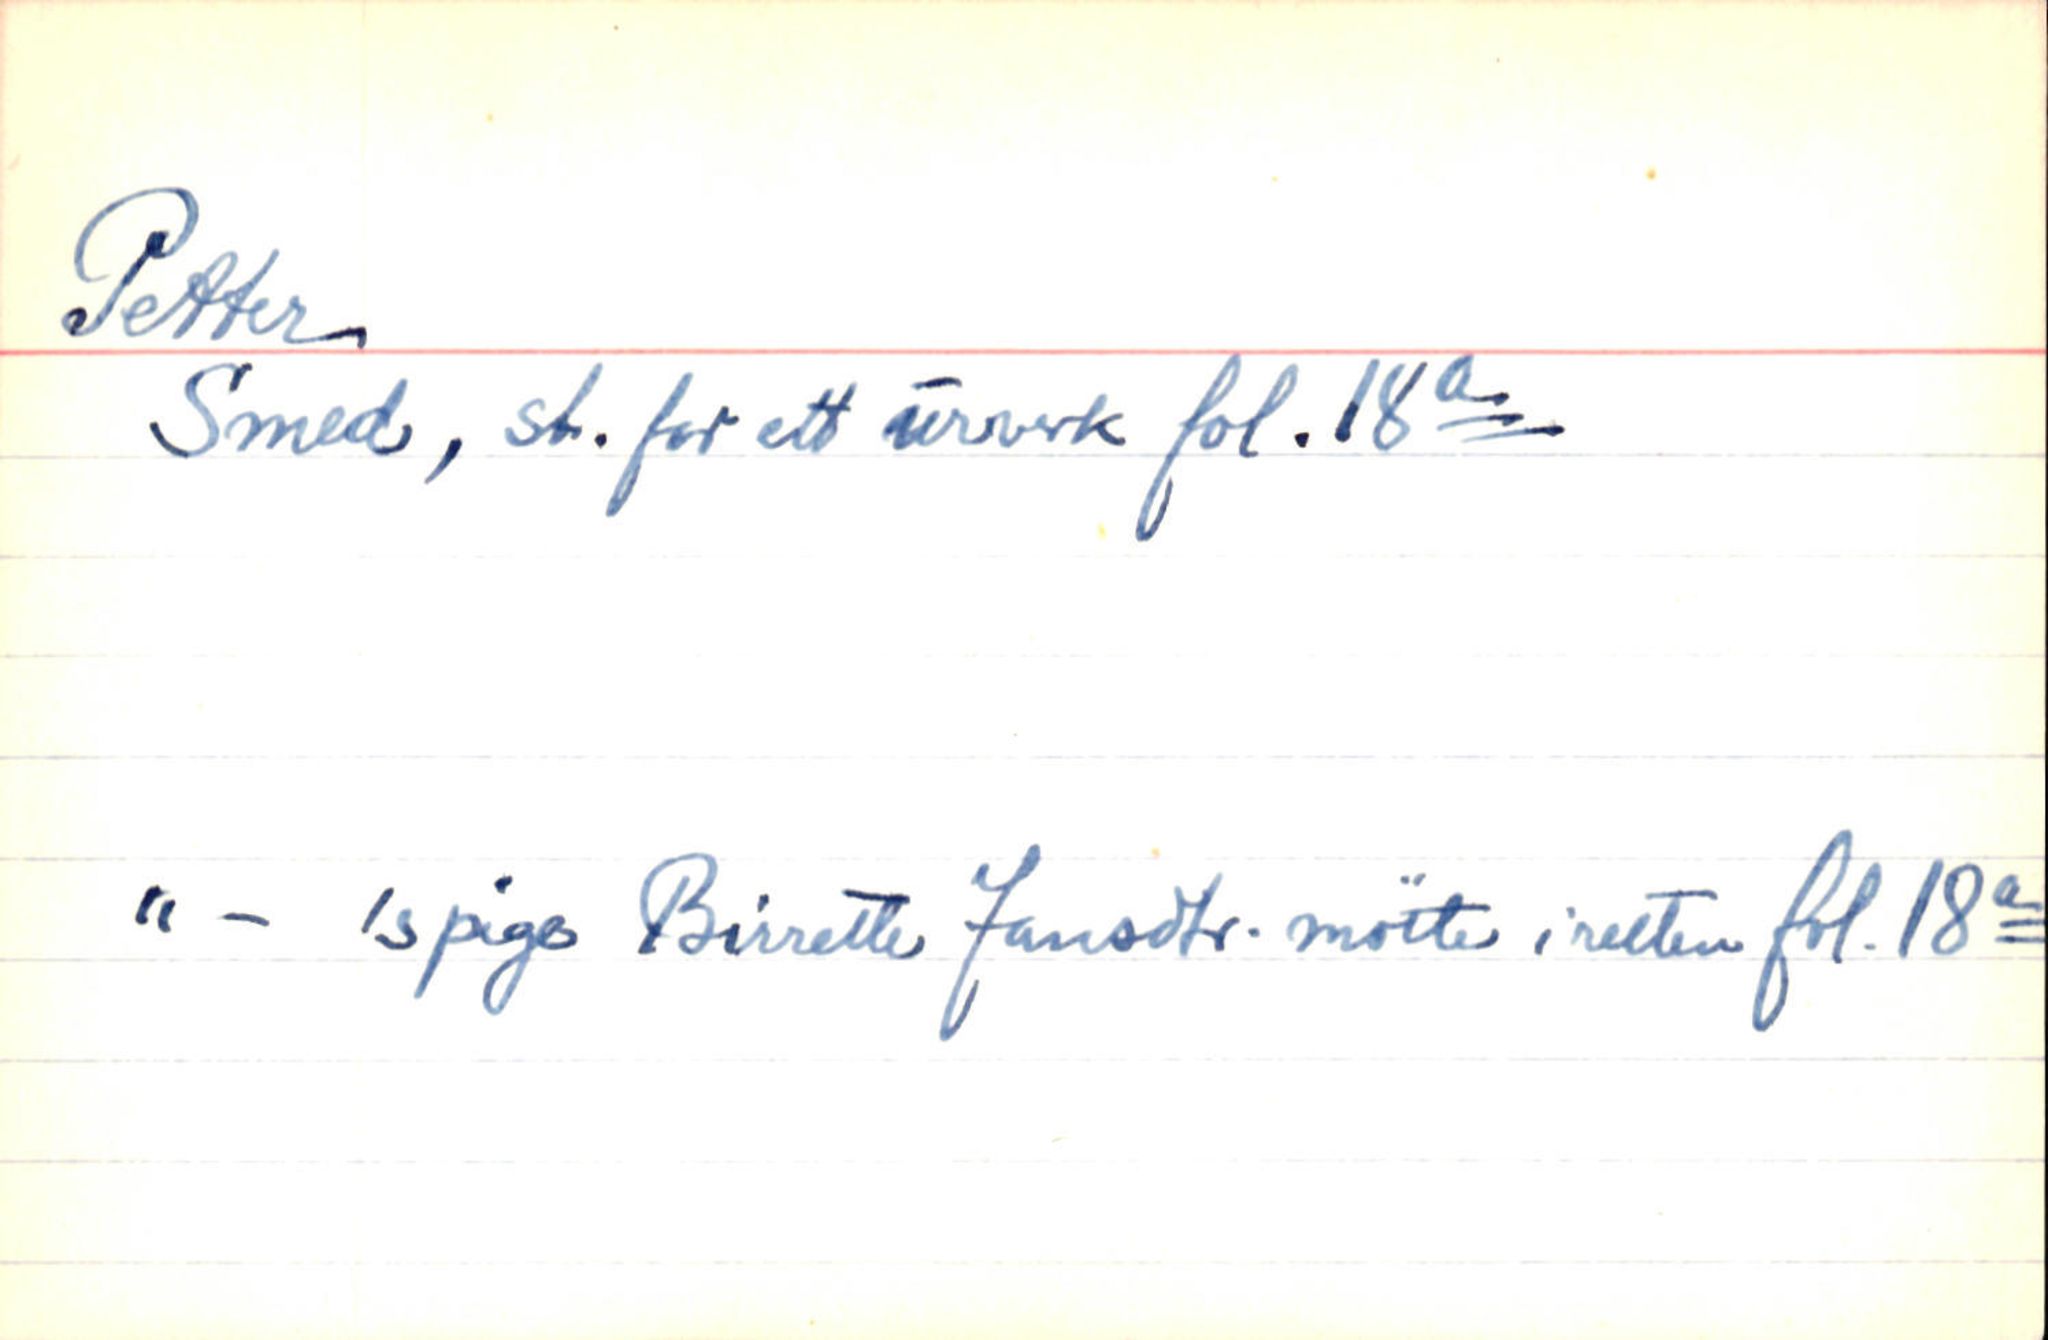 Petter
Smed, st. for ett urverk fol. 18a
" - 's pige Birrette Jansdtr. mötte i retten fol. 18a